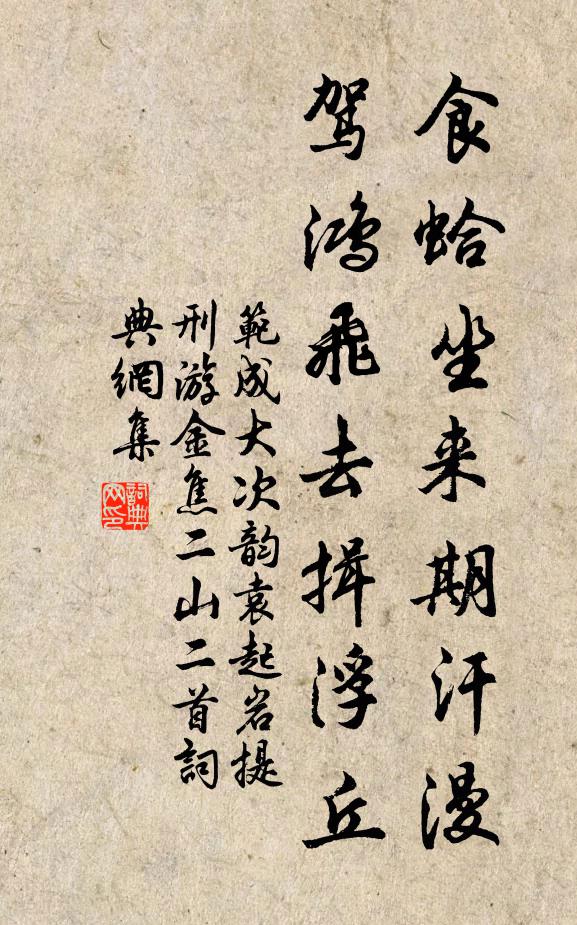 食蛤坐来期汗漫
駕鴻飛去揖浮丘
範成大次韵袁起岩提
刑游金焦二山二首詞
典網集
詞典
网印